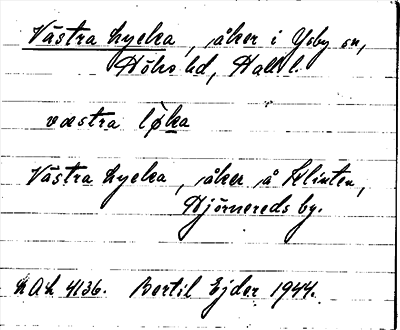 Västra Lycka, åker i Ysby sn,
Höks hd, Hall l.
væstra lø̀ka
Västra Lycka, åker å Klinten,
Hjörnereds by.
LAL 4136. Bertil Ejder 1944.